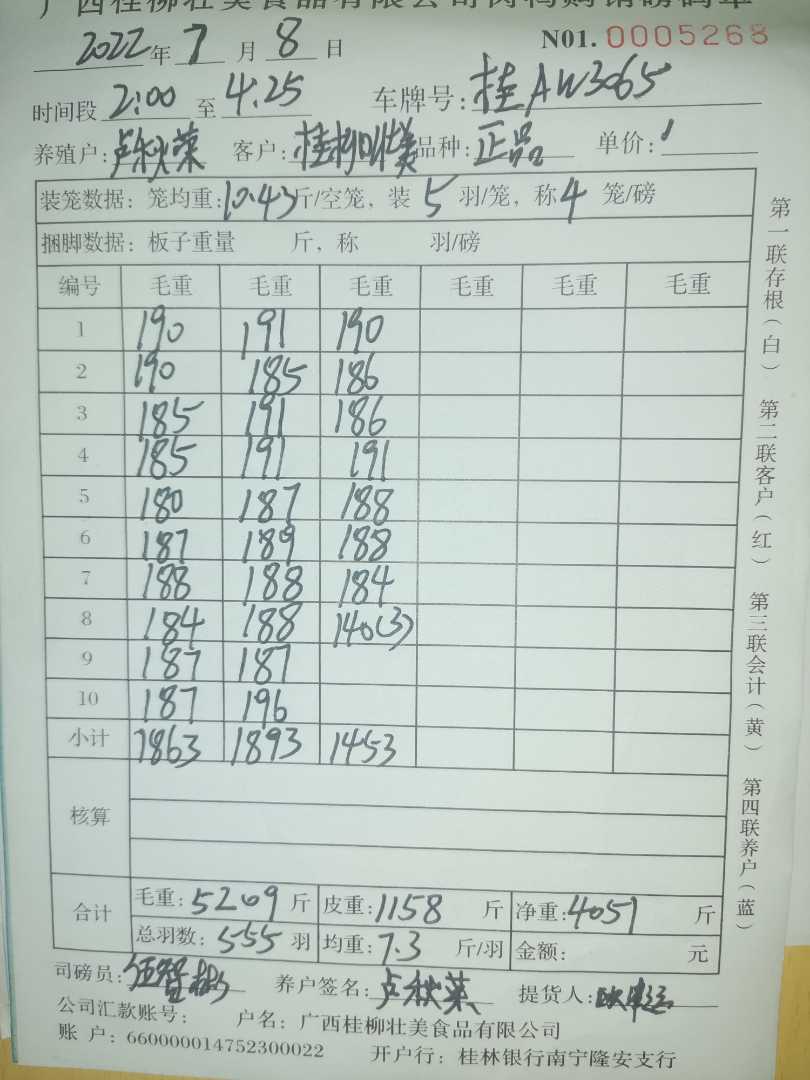 广西桂柳壮美食品有限公司肉鸭购销磅码单
2022年7月8日 N01. 0005268
时间段 2:00 至 4:25 车牌号: 桂AW3065
养殖户: 卢秋菜 客户: 桂柳壮美 品种: 正品 单价:
装笼数据: 笼均重: 10.43斤/空笼, 装 5 羽/笼, 称 4 笼/磅
捆脚数据: 板子重量 斤, 称 羽/磅
编号 毛重 毛重 毛重 毛重 毛重 毛重
1 190 191 190
2 190 185 186
3 185 191 186
4 185 191 191
5 180 187 188
6 187 189 188
7 188 188 184
8 184 188 140(3)
9 187 187
10 187 196
小计 1863 1893 1453
核算
合计 毛重: 5209 斤 皮重: 1158 斤 净重: 4051 斤
总羽数: 555 羽 均重: 7.3 斤/羽 金额: 元
司磅员: 养户签名: 卢秋菜 提货人:
公司汇款账号: 户名: 广西桂柳壮美食品有限公司
账 户: 660000014752300022 开户行: 桂林银行南宁隆安支行
第一联存根(白) 第二联客户(红) 第三联会计(黄) 第四联养户(蓝)